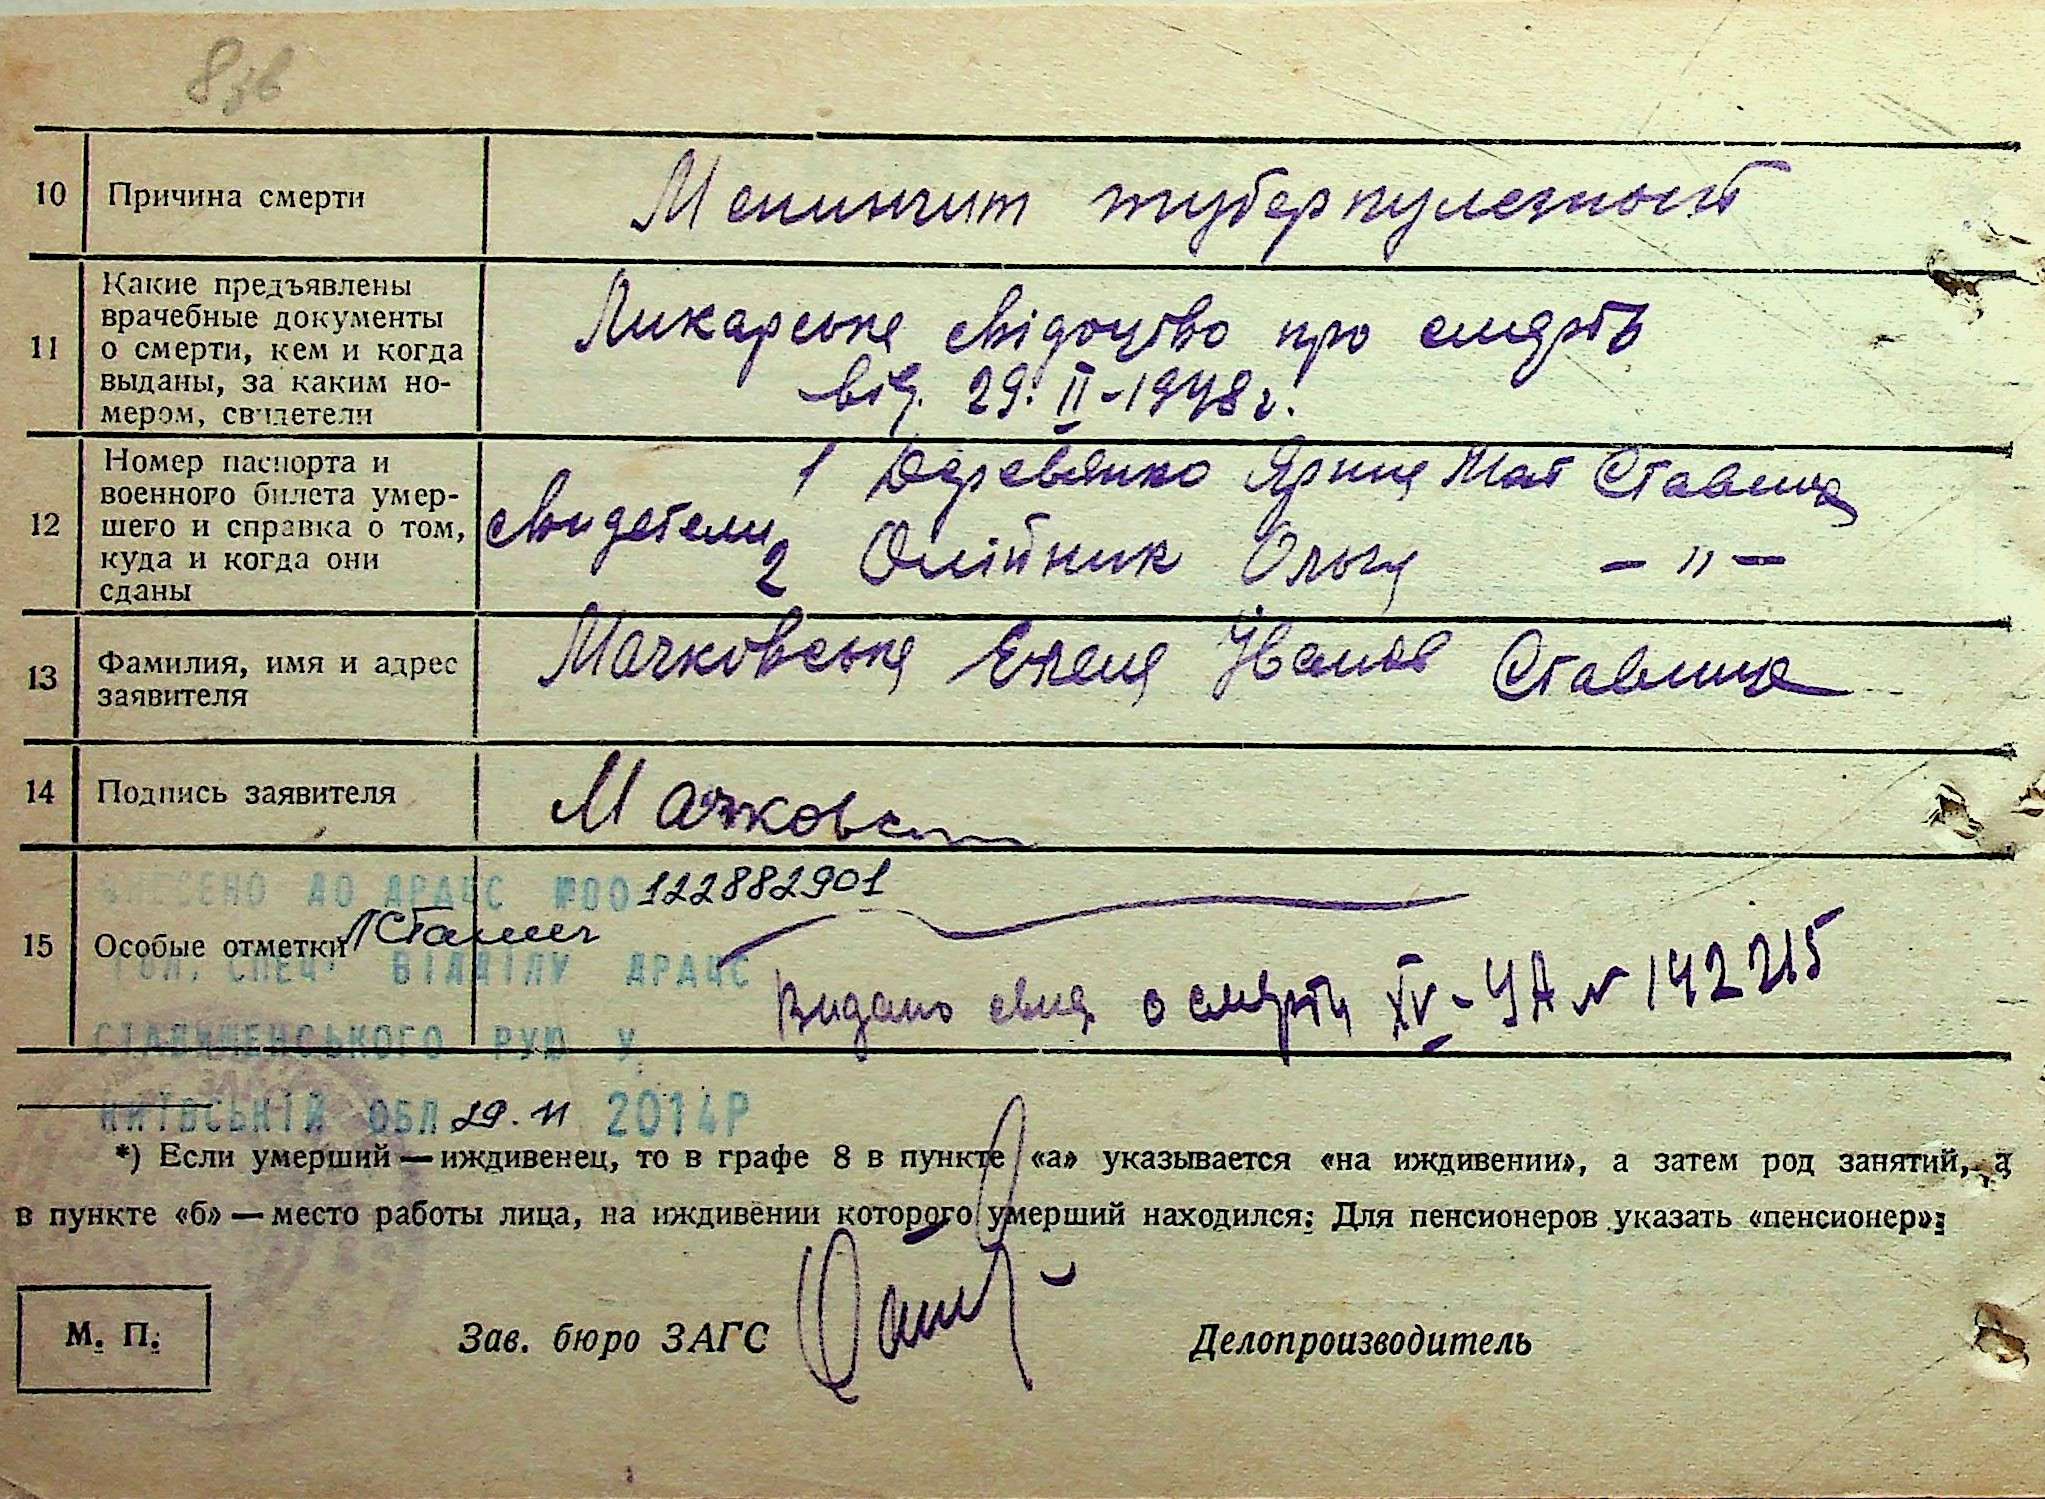 8зв
10 Причина смерти Менингит туберкулезный
11 Какие предъявлены
врачебные документы
о смерти, кем и когда
выданы, за каким но-
мером, свидетели
Ликарське свідоцтво про смерть
від. 29. II-1948 г.
12 Номер паспорта и
военного билета умер-
шего и справка о том,
куда и когда они
сданы
Свидетели 1 Деревянко Ярина Мат Ставище
2 Олійник Ольга — " —
13 Фамилия, имя и адрес
заявителя
Мачковська Елена Иванов Ставище
14 Подпись заявителя Мачковс
15 Особые отметки
ВНЕСЕНО ДО ДРАЦС №00 122882901
ГОЛ. СПЕЦ. ВІДДІЛУ ДРАЦС
СТАВИЩЕНСЬКОГО РУЮ У
КИЇВСЬКІЙ ОБЛ 29.11 2014Р
Видано свид о смерти XV-УА № 142215
*) Если умерший — иждивенец, то в графе 8 в пункте «а» указывается «на иждивении», а затем род занятий, а
в пункте «б» — место работы лица, на иждивении которого умерший находился: Для пенсионеров указать «пенсионер»:
М. П. Зав. бюро ЗАГС Делопроизводитель